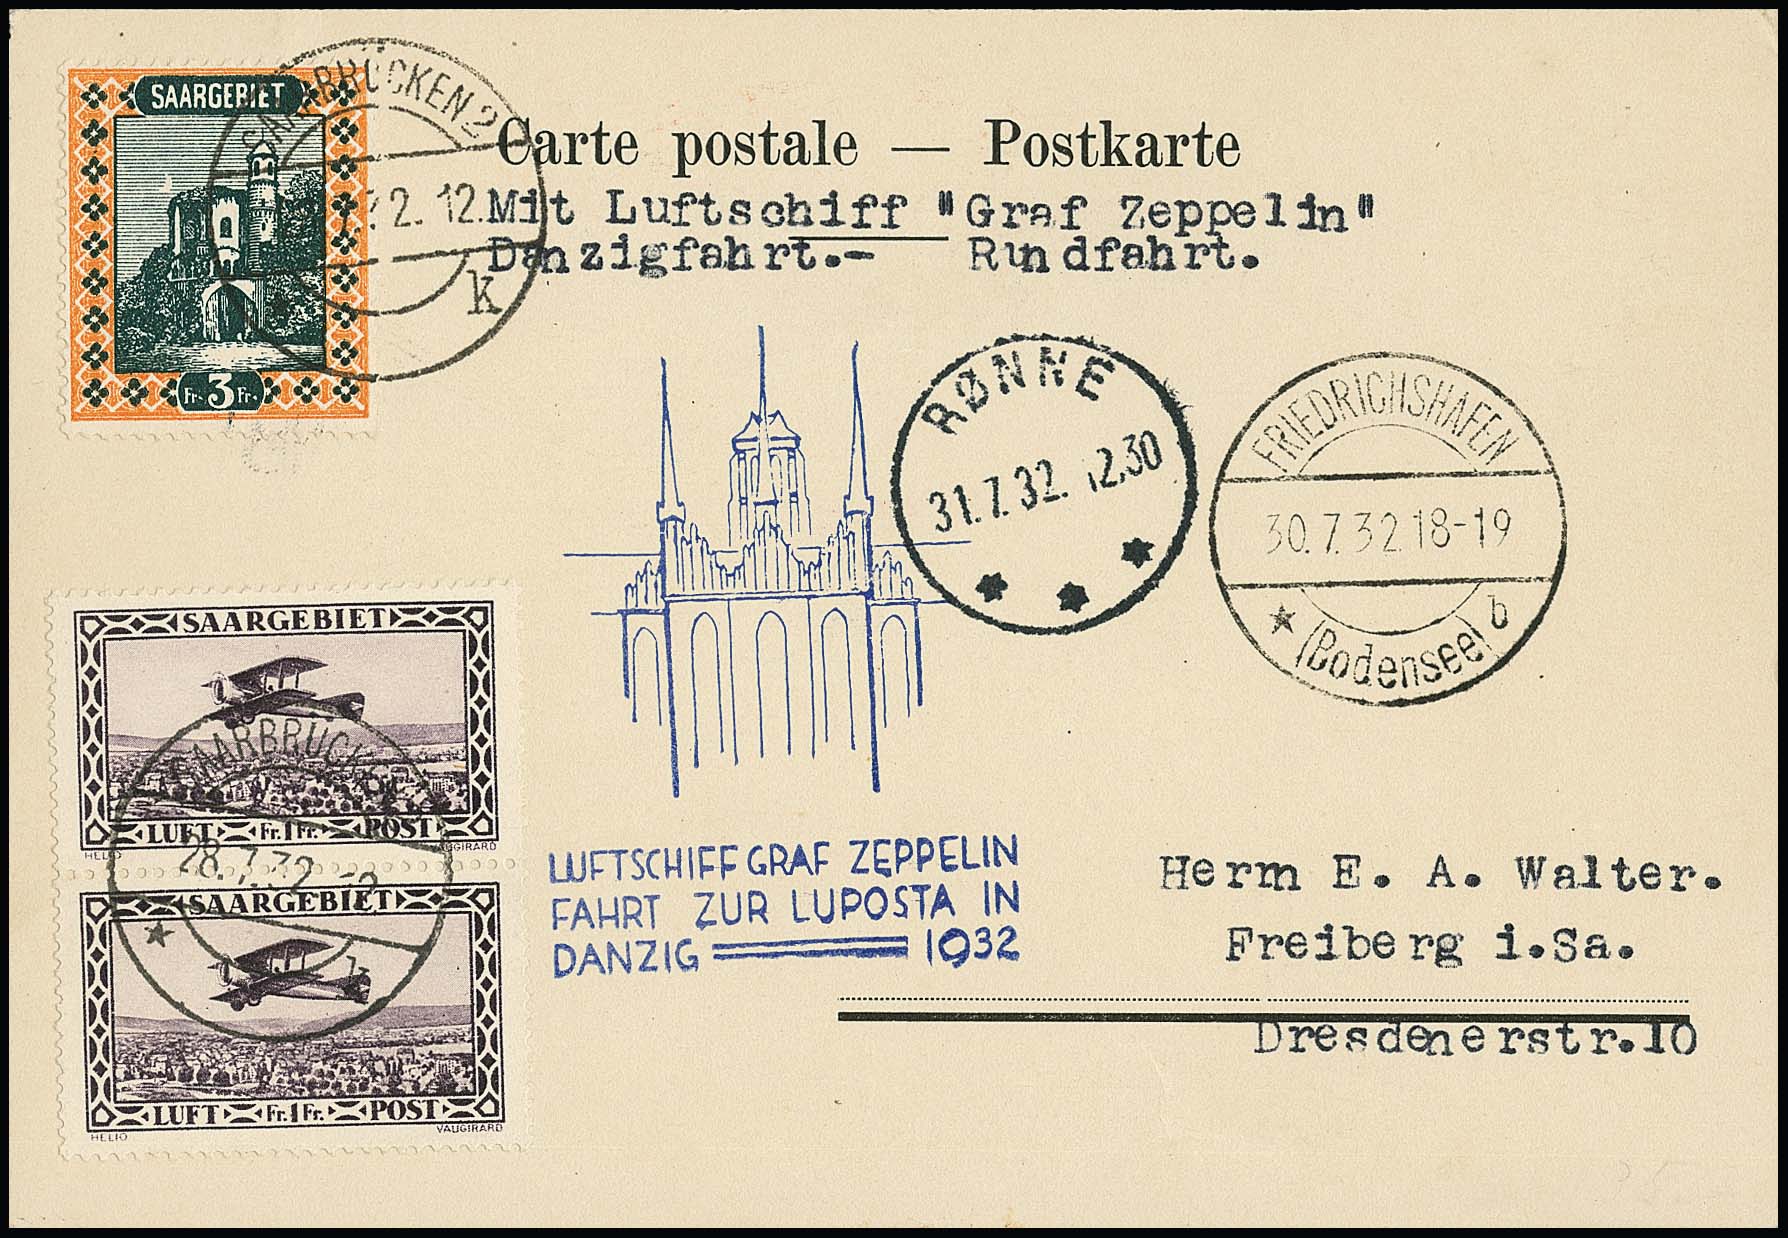 SAARGEBIET
Fr. 3 Fr.
SAARBRÜCKEN 2
12.
k
Carte postale — Postkarte
Mit Luftschiff "Graf Zeppelin"
Danzigfahrt.- Rundfahrt.
RØNNE
31.7.32. 12.30
FRIEDRICHSHAFEN
30.7.32.18-19
(Bodensee) b
SAARGEBIET
LUFT Fr.1Fr. POST
HELIO VAUGIRARD
SAARBRÜCKEN
28.7.32
SAARGEBIET
LUFT Fr.1Fr. POST
HELIO VAUGIRARD
LUFTSCHIFF GRAF ZEPPELIN
FAHRT ZUR LUPOSTA IN
DANZIG 1932
Herrn E. A. Walter.
Freiberg i.Sa.
Dresdenerstr.10